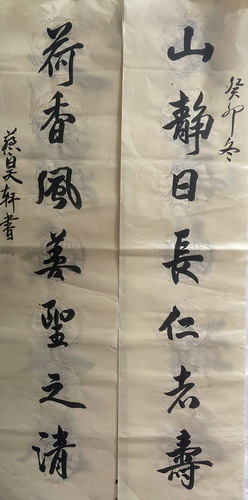 癸卯冬
山静日長仁者壽
荷香風善聖之清
蔡昊軒書